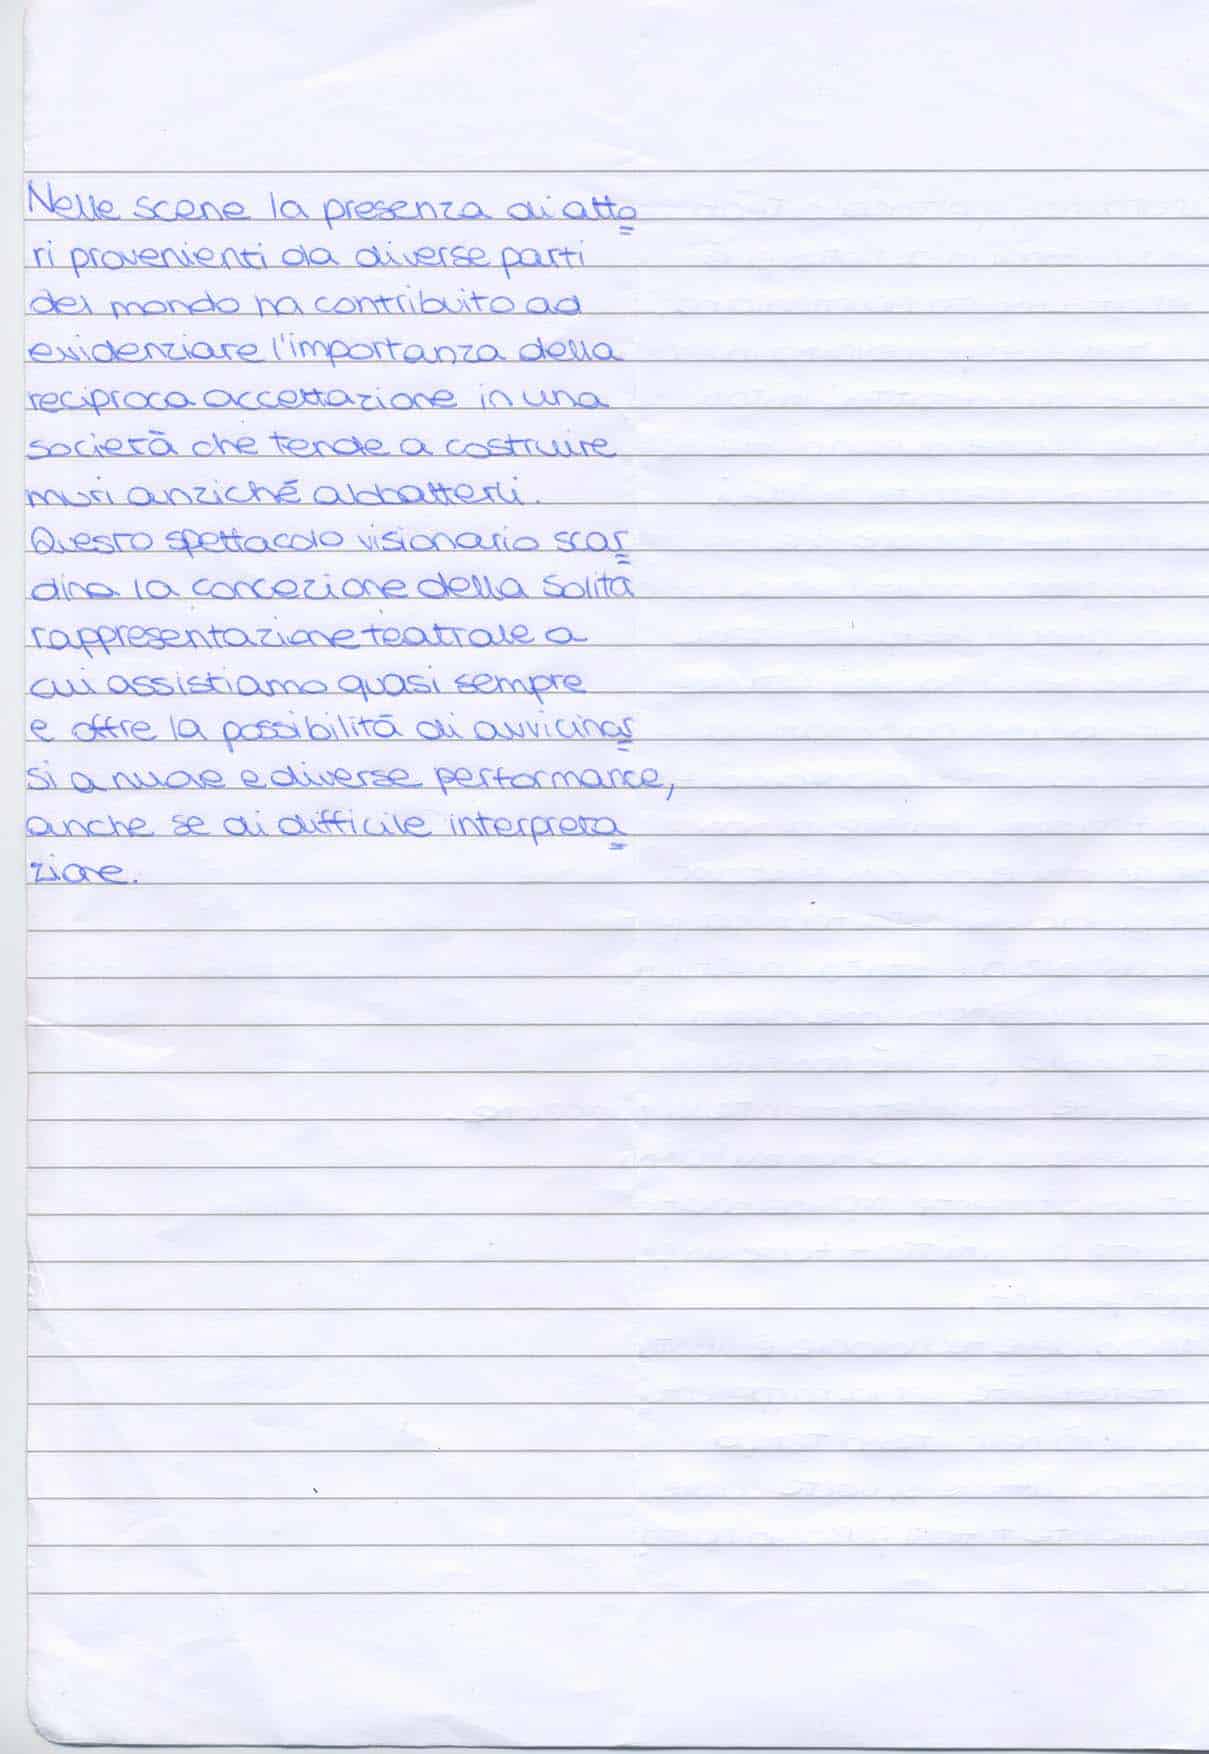 Nelle scene la presenza di atto
ri provenienti da diverse parti
del mondo ha contribuito ad
evidenziare l'importanza della
reciproca accettazione in una
società che tende a costruire
muri anziché abbatterli.
Questo spettacolo visionario scar
dina la concezione della solita
rappresentazione teatrale a
cui assistiamo quasi sempre
e offre la possibilità di avvicinar
si a nuove e diverse performance,
anche se di difficile interpreta
zione.